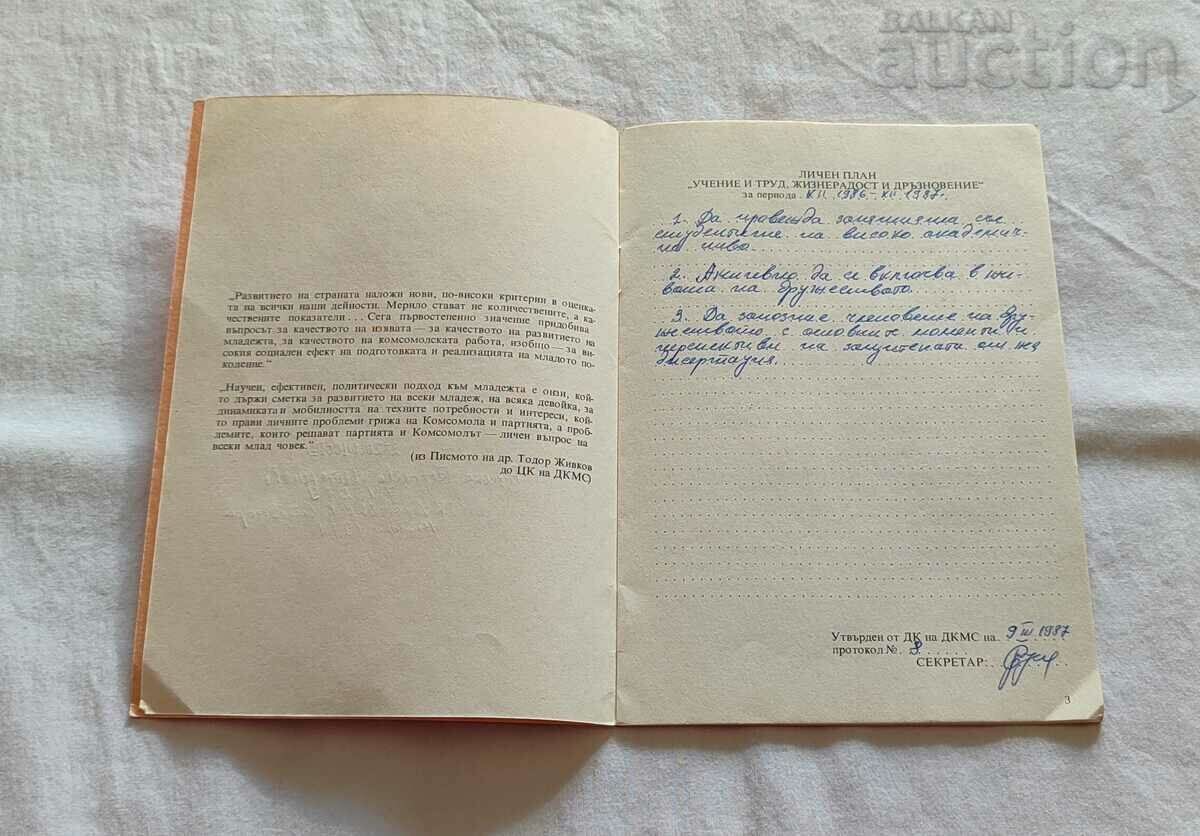 BALKAN
auction
„Развитието на страната наложи нови, по-високи критерии в оценка-
та на всички наши дейности. Мерило стават не количествените, а ка-
чествените показатели . . . Сега първостепенно значение придобива
въпросът за качеството на изявата — за качеството на развитието на
младежта, за качеството на комсомолската работа, изобщо — за ви-
сокия социален ефект на подготовката и реализацията на младото по-
коление.“
„Научен, ефективен, политически подход към младежта е онзи, кой-
то държи сметка за развитието на всеки младеж, на всяка девойка, за
динамиката и мобилността на техните потребности и интереси, кой-
то прави личните проблеми грижа на Комсомола и партията, а проб-
лемите, които решават партията и Комсомолът — личен въпрос на
всеки млад човек.“
(из Писмото на др. Тодор Живков
до ЦК на ДКМС)
ЛИЧЕН ПЛАН
„УЧЕНИЕ И ТРУД, ЖИЗНЕРАДОСТ И ДРЪЗНОВЕНИЕ“
за периода XII 1986 – XII 1987г.
1. Да провежда занятията със
студентите на високо академич-
но ниво.
2. Активно да се включва в жи-
вота на дружеството.
3. Да запознае членовете на дру-
жеството с основните моменти и
перспективи на защитената от
дисертация.
Утвърден от ДК на ДКМС на 9 III 1987
протокол № 8
СЕКРЕТАР:
3